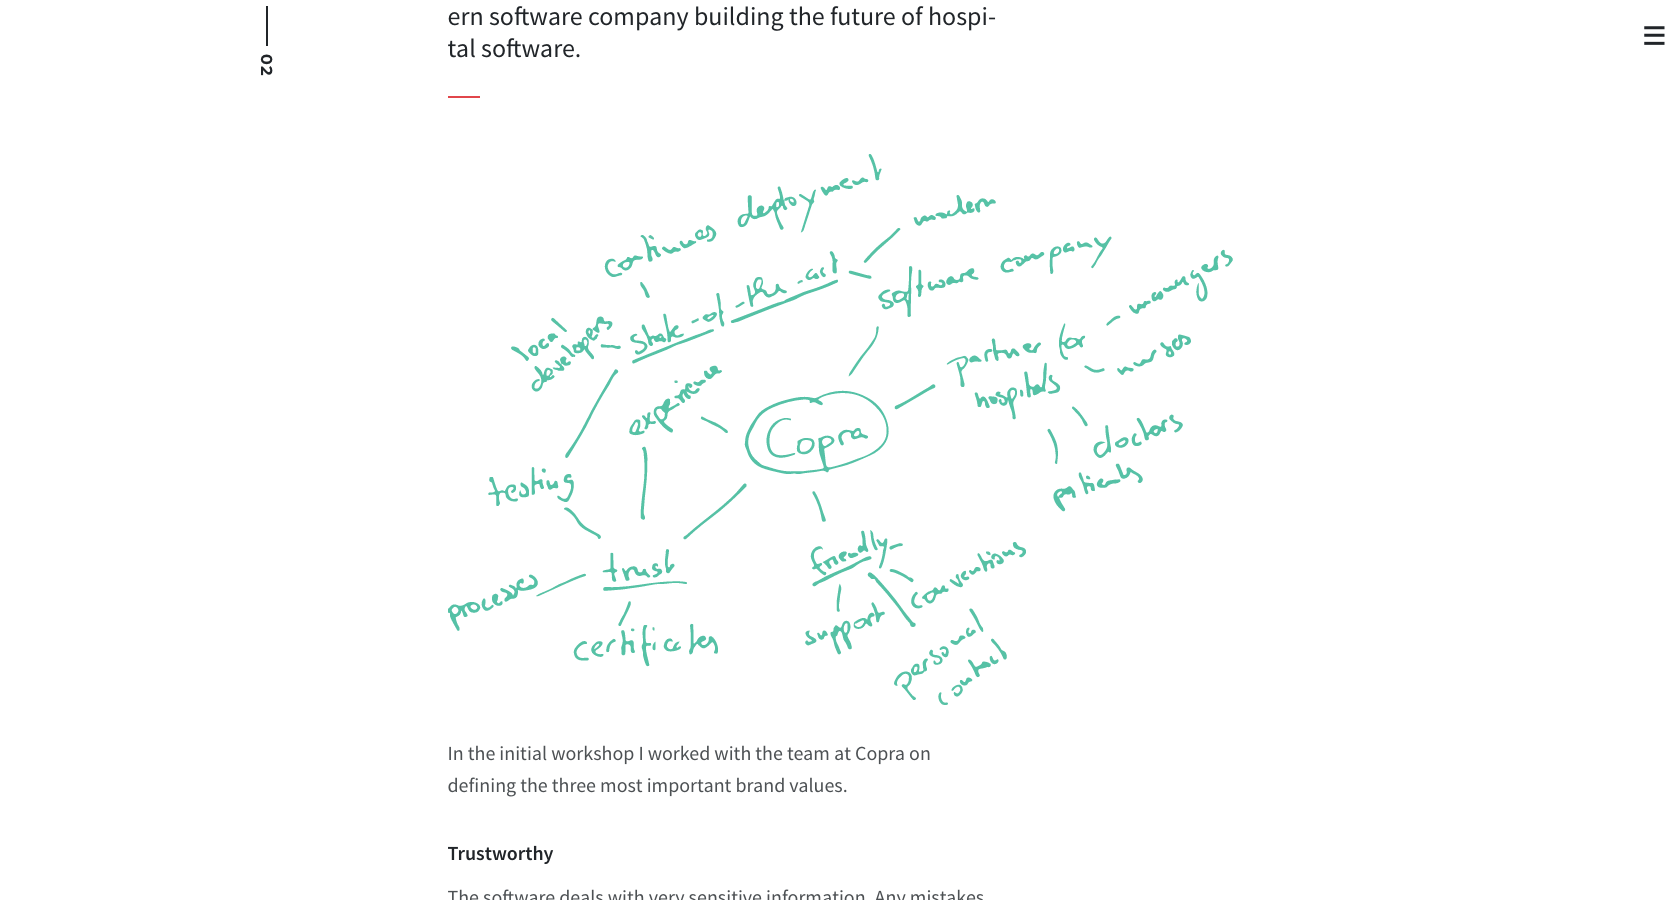 ern software company building the future of hospi-
tal software.
02
continues deployment
modern
state-of-the-art
software company
local
developers
managers
partner for
hospitals
nurses
experience
Copra
doctors
testing
patients
trust
friendly
conventions
processes
support
certificates
personal
contact
In the initial workshop I worked with the team at Copra on
defining the three most important brand values.
Trustworthy
The software deals with very sensitive information. Any mistakes